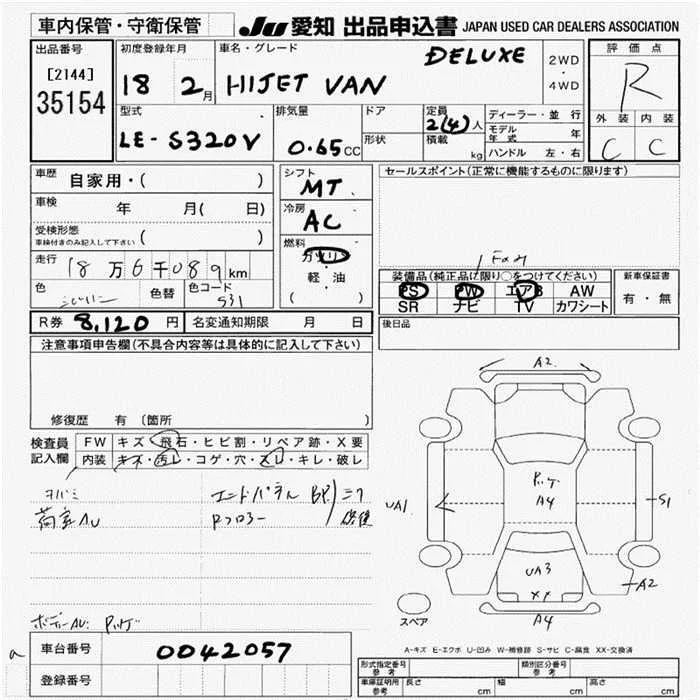 車内保管・守衛保管 JU 愛知 出品申込書 JAPAN USED CAR DEALERS ASSOCIATION
出品番号 初度登録年月 車名・グレード DELUXE 2WD・4WD 評価点
[2144] 18 2月 HIJET VAN R
35154
型式 排気量 ドア 定員 2(4)人 ディーラー・並行 外装 内装
LE-S320V 0.65CC 形状 積載 kg モデル年式 年 C C
ハンドル 左・右
車歴 自家用・( ) シフト MT セールスポイント(正常に機能するものに限ります)
車検 年 月( 日) 冷房 AC
受検形態 車検付きのみ記入して下さい ( ) 燃料 ガソリン
走行 18万6千089km 軽・油
( )
装備品(純正品に限り○をつけてください) 新車保証書
PS PW エアB AW 有・無
SR ナビ TV カワシート
色 色替 色コード S31
R券 8,120円 名変通知期限 月 日 後日品
注意事項申告欄(不具合内容等は具体的に記入して下さい)
修復歴 有 〔箇所 〕
検査員記入欄 FW キズ・飛石・ヒビ割・リペア跡・X要
内装 キズ・汚レ・コゲ・穴・スレ・キレ・破レ
荷室AU エンドパネル BP
Rフロアー
A2
UA1 A4 S1
UA3
XX
A2
A4
スペア
A-キズ E-エクボ U-凹み W-補修跡 S-サビ C-腐食 XX-交換済
車台番号 0042057
登録番号
形式指定番号 参考 類別区分番号 参考
車庫証明用 参考 長さ cm 幅 cm 高さ cm